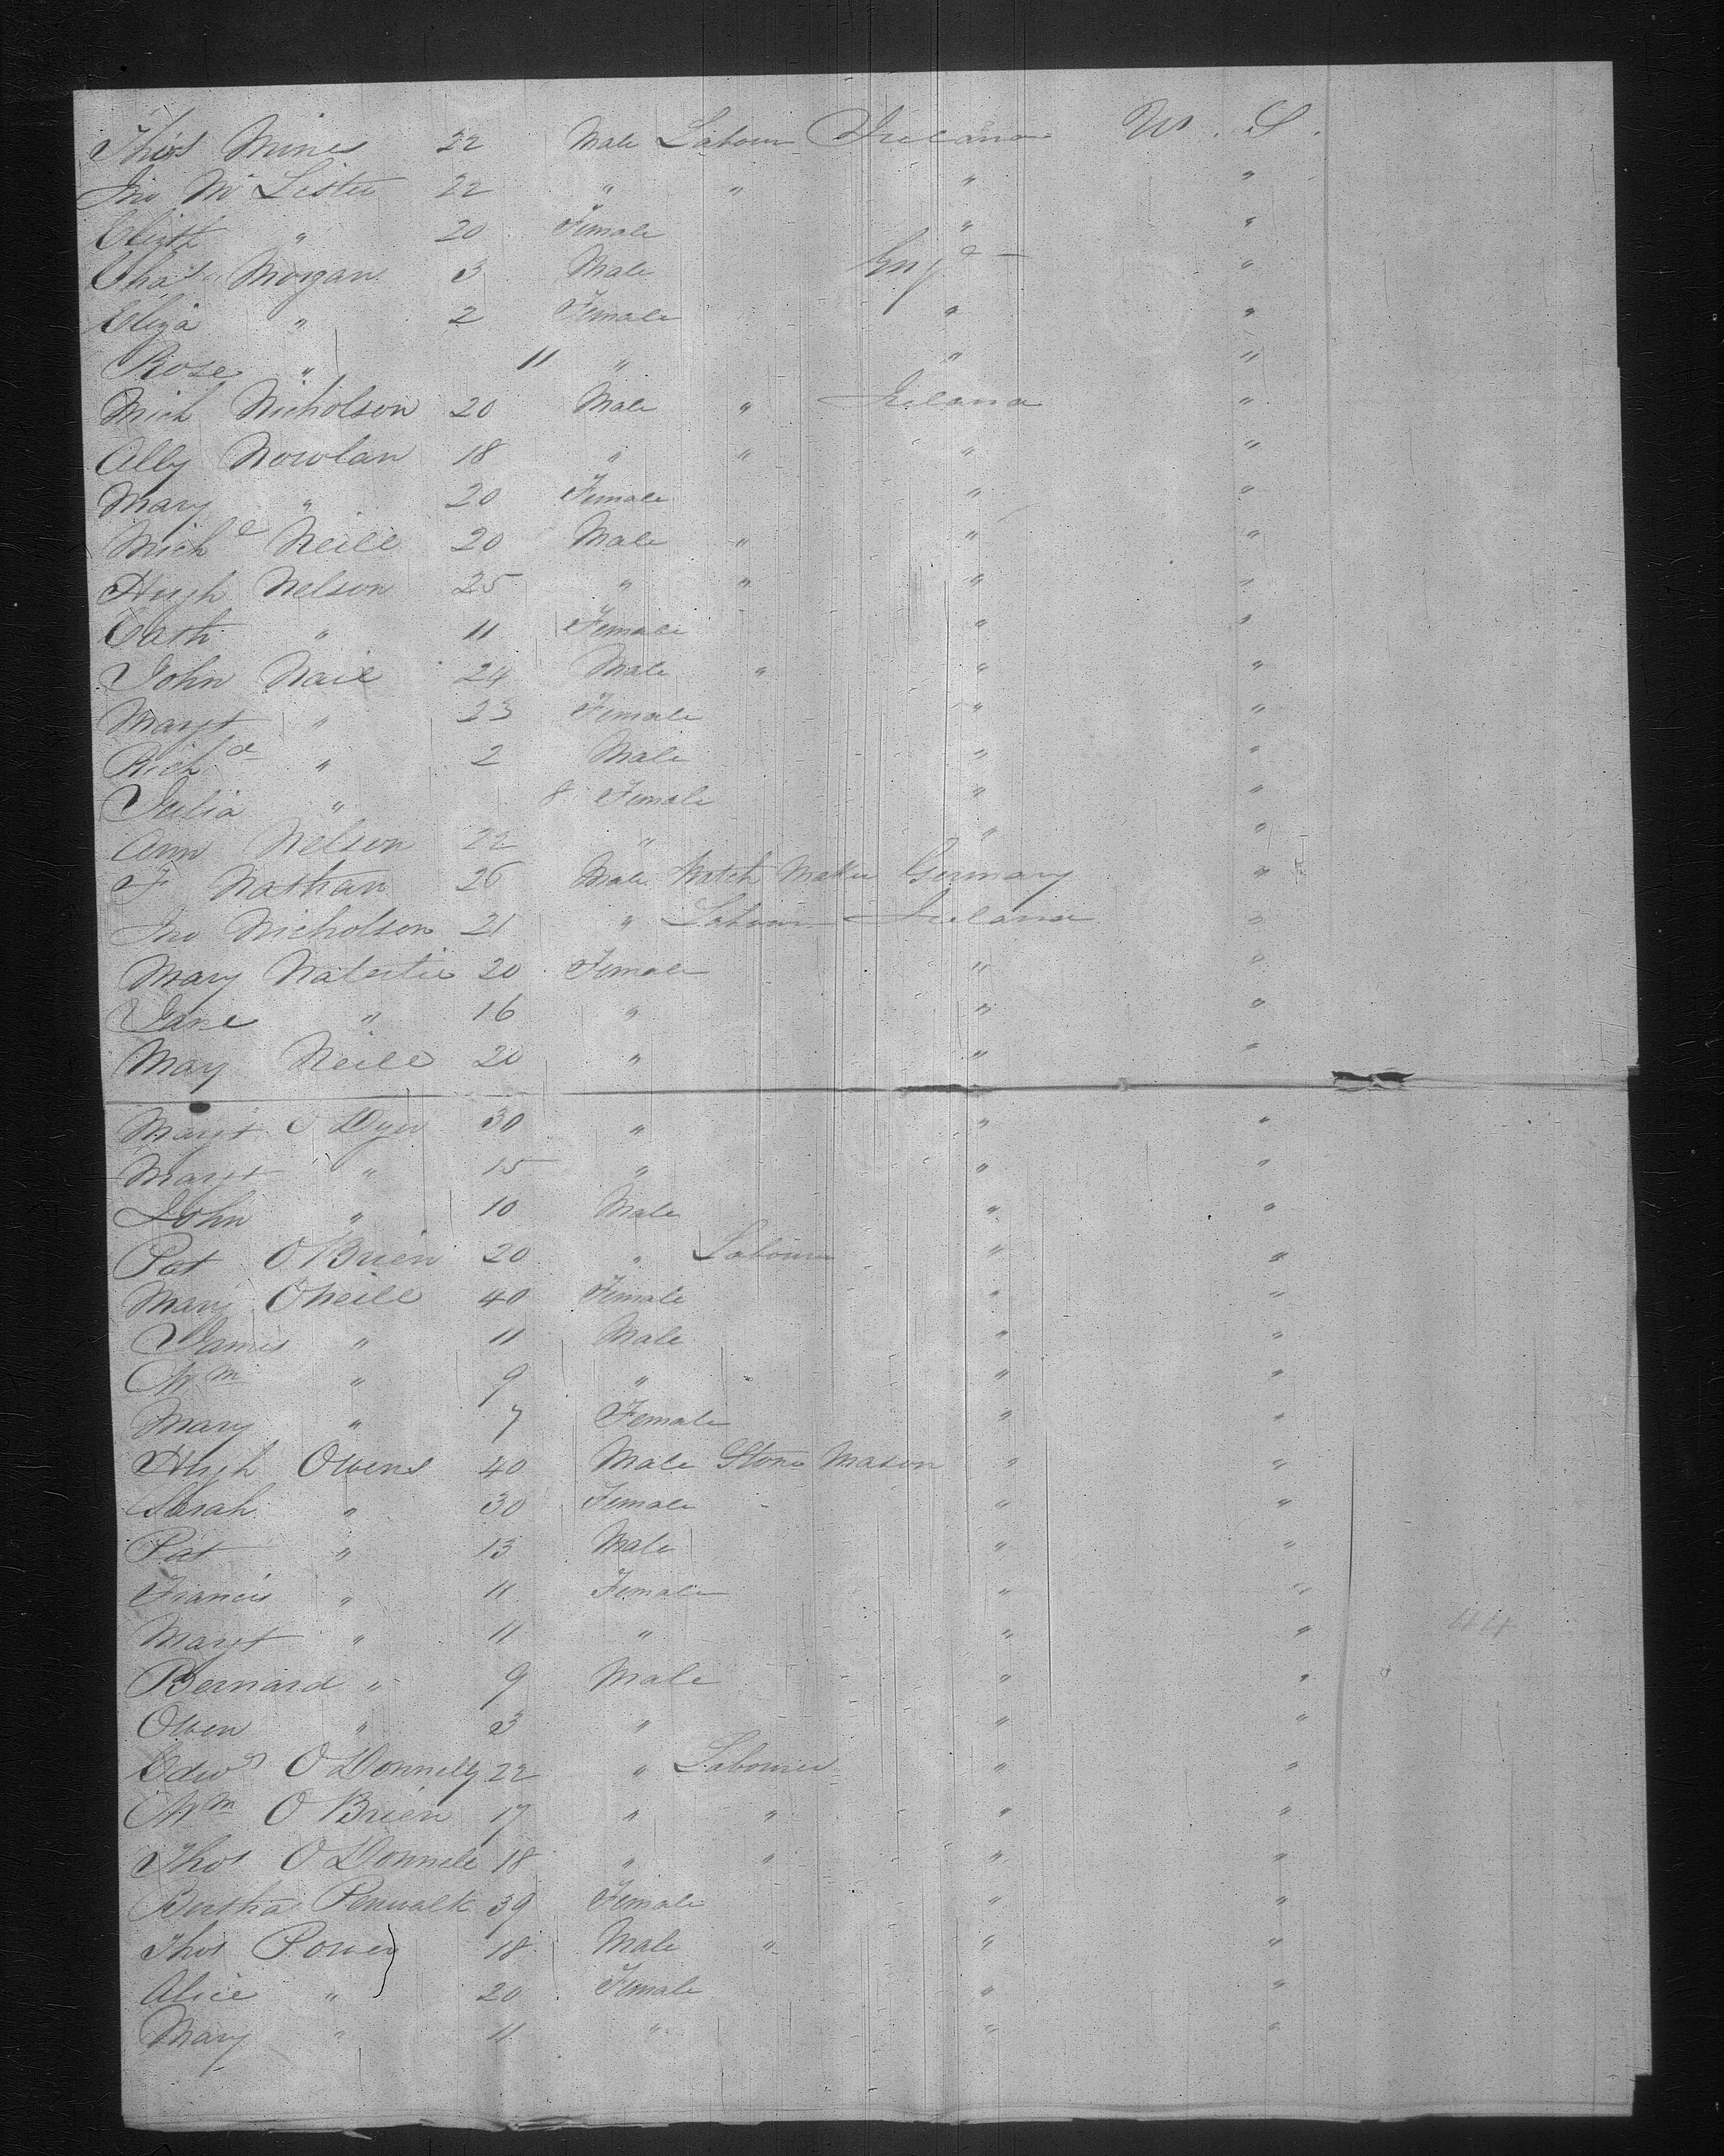 Thos Mines 22 Male Labour Ireland U. S.
Jno Mc Lister 22 " " " "
Elizth " 20 Female " "
Chas Morgan 3 Male Engd "
Eliza " 2 Female " "
Rose " 11 " " "
Mich Nicholson 20 Male " Ireland "
Ally Nowlan 18 " " " "
Mary " 20 Female " "
Michl Neill 20 Male " " "
Hugh Nelson 25 " " " "
Cath " 11 Female " "
John Nail 24 Male " " "
Margt " 23 Female " "
Richd " 2 Male " "
Julia " 8 Female " "
Ann Nelson 22 " " "
J Nathan 26 Male Watch Maker Germany "
Jno Nicholson 21 " Labour Ireland "
Mary 20 Female " "
Jane " 16 " " "
May Neill 20 " " "
Margt O Dyer 30 " " "
Margt " 15 " " "
John " 10 Male " "
Pat O Brien 20 " Labourer " "
Mary O Neill 40 Female " "
James " 11 Male " "
Wm " 9 " " "
Mary " 7 Female " "
Hugh Owens 40 Male Stone Mason " "
Sarah " 30 Female " "
Pat " 13 Male " "
Francis " 11 Female " "
Margt " 11 " " "
Bernard " 9 Male " "
Owen " 3 " " "
Edwd O Donnelly 22 " Labourer " "
Wm O Brien 17 " " " "
Thos O Donnell 18 " " " "
Bertha Penwalk 39 Female " "
Thos Power 18 Male " " "
Alice " 20 Female " "
Mary " 11 " " "